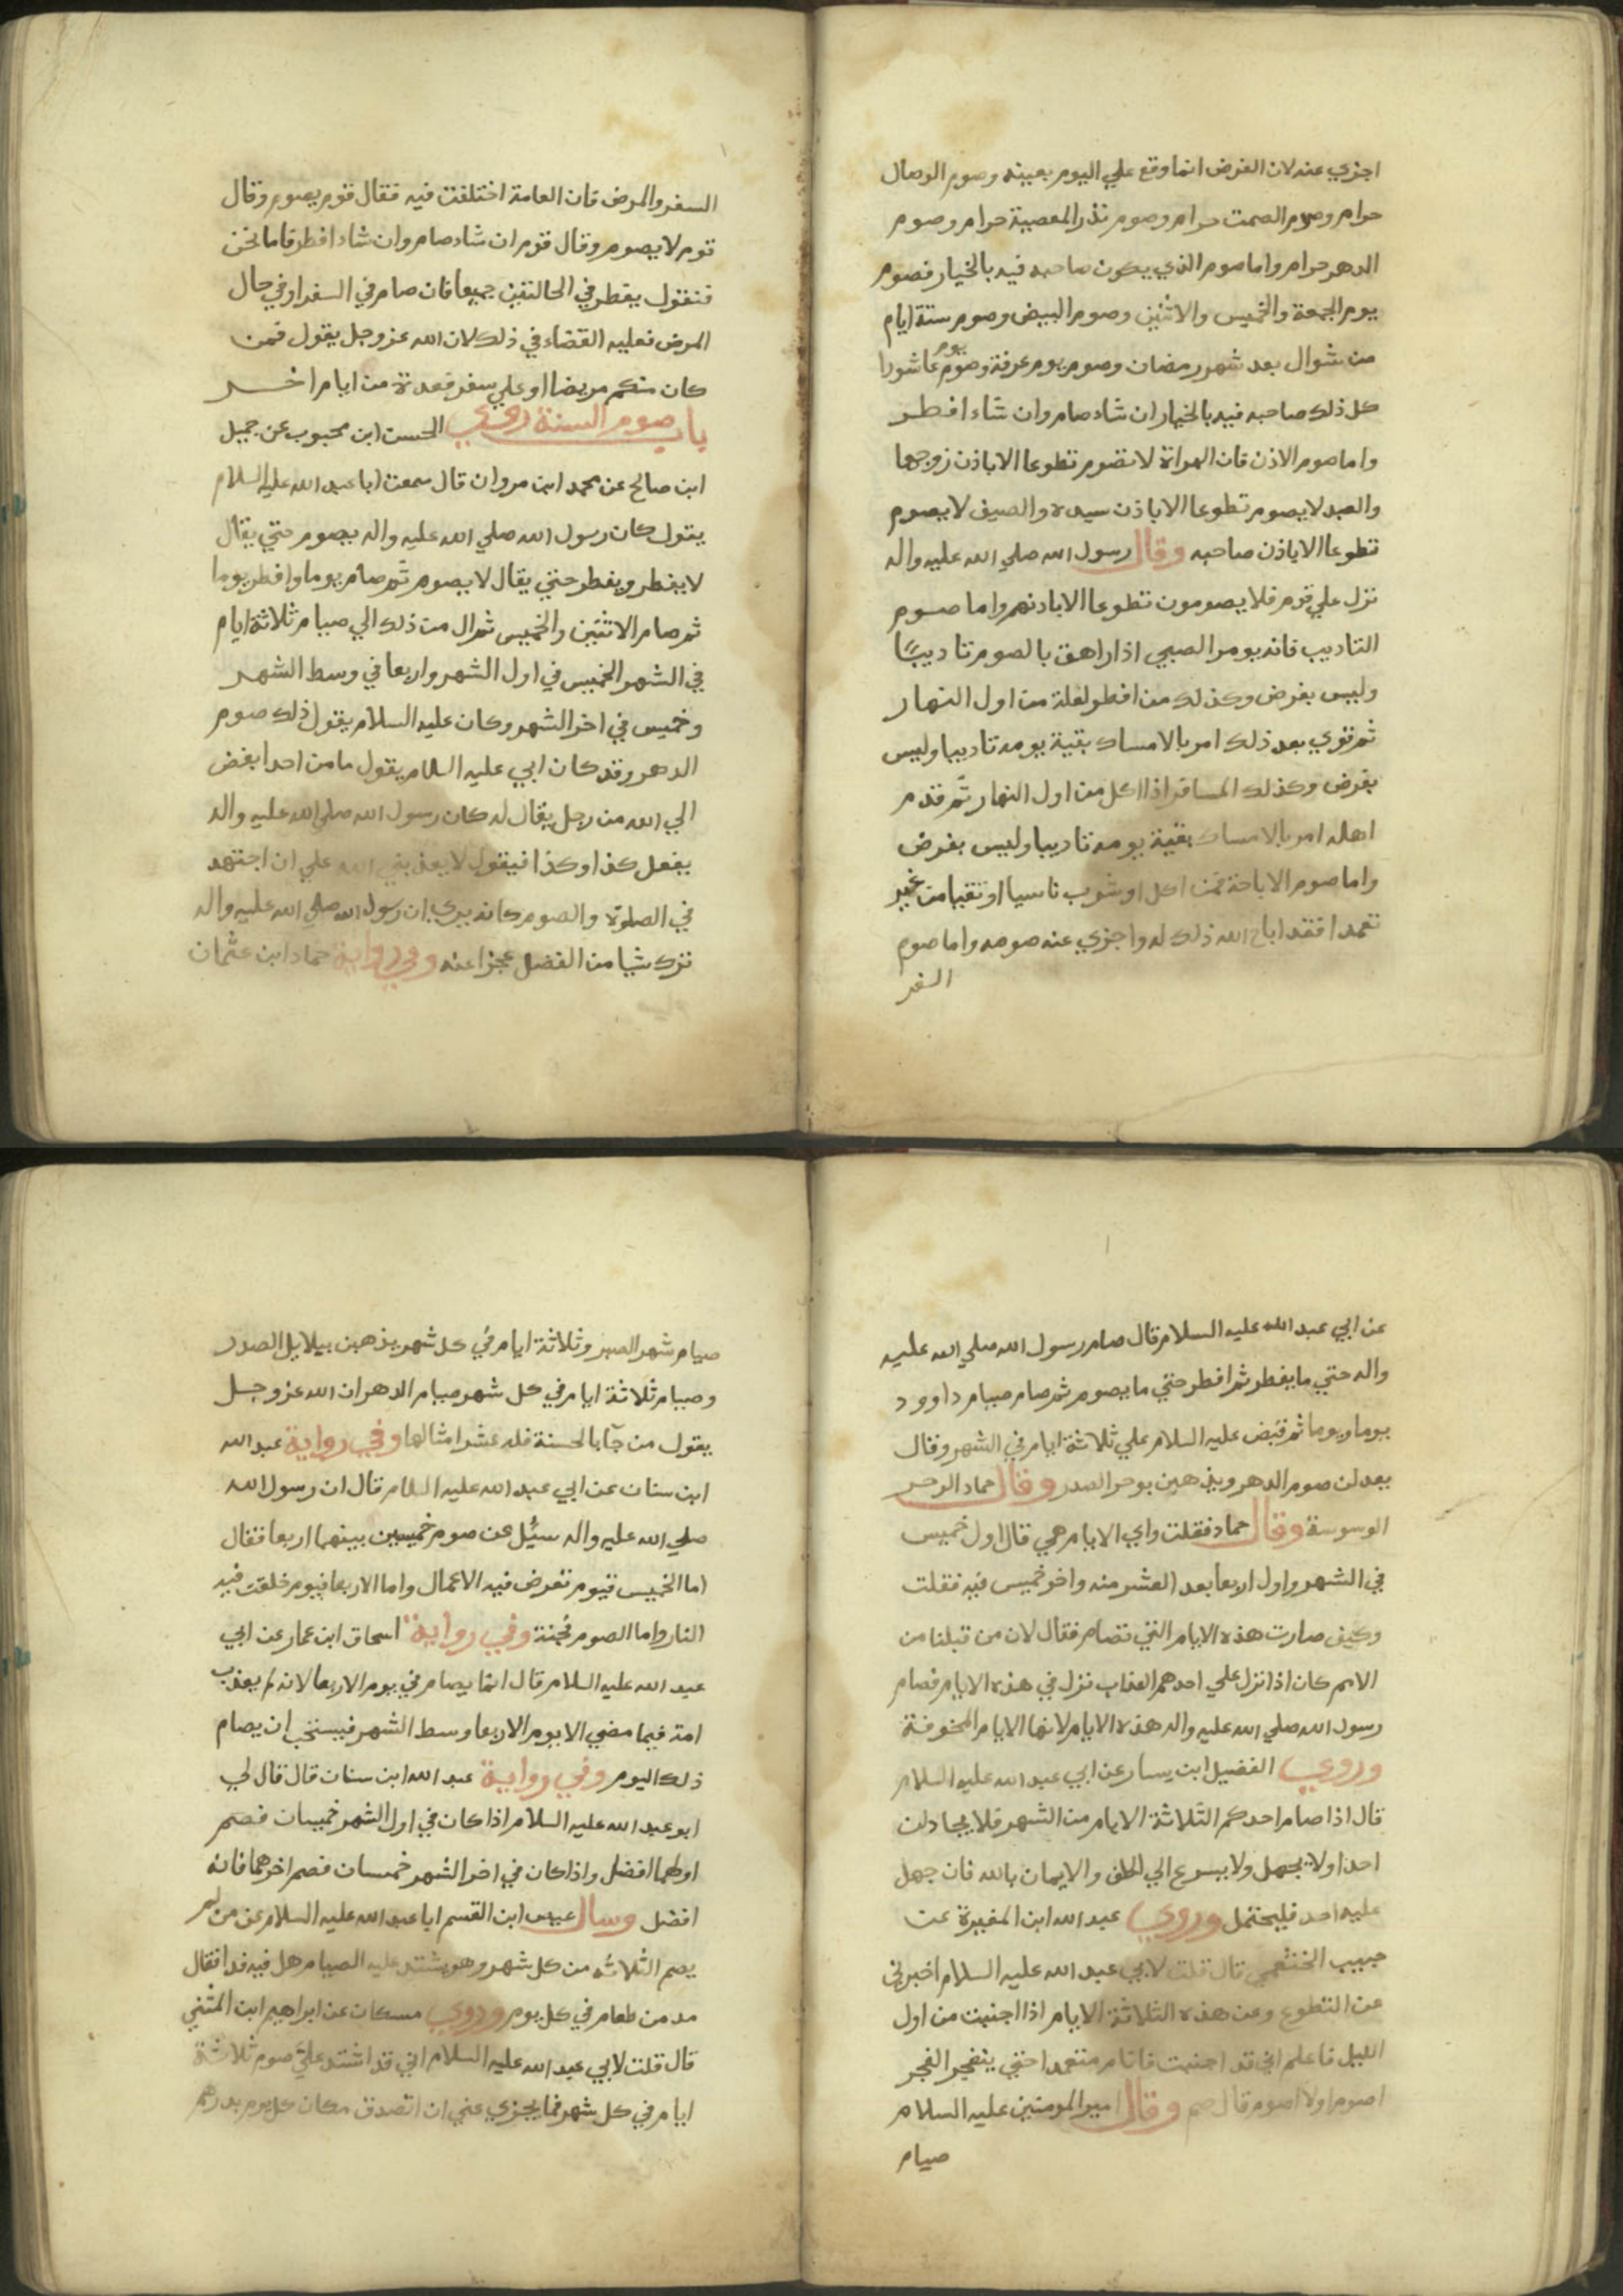 اجزي عنه لان الفرض انما وقع علي اليوم بعينه وصوم الوصال
حرام وصوم الصمت حرام وصوم نذر المعصية حرام وصوم
الدهر حرام واما صوم الذي يكون صاحبه فيه بالخيار فصوم
يوم الجمعة والخميس والاثنين وصوم البيض وصوم ستة ايام
من شوال بعد شهر رمضان وصوم يوم عرفة وصوم يوم عاشورا
كل ذلك صاحبه فيه بالخيار ان شاء صام وان شاء افطر
واما صوم الاذن فان المراة لا تصوم تطوعا الا باذن زوجها
والعبد لا يصوم تطوعا الا باذن سيده والضيف لا يصوم
تطوعا الا باذن صاحبه وقال رسول الله صلي الله عليه واله
نزل علي قوم فلا يصومون تطوعا الا باذنهم واما صوم
التاديب فانه يومر الصبي اذا راهق بالصوم تاديبًا
وليس بفرض وكذلك من افطر لعلة من اول النهار
ثم قوي بعد ذلك امر بالامساك بقية يومه تاديبا وليس
بفرض وكذلك المسافر اذا اكل من اول النهار ثم قدم
اهله امر بالامساك بقية يومه تاديبا وليس بفرض
واما صوم الاباحة فمن اكل او شرب ناسيا او تقيا من غير
تعمدا فقد اباح الله ذلك له واجزي عنه صومه واما صوم
السفر
السفر والمرض فان العامة اختلفت فيه فقال قوم يصوم وقال
قوم لا يصوم وقال قوم ان شاء صام وان شاء افطر فاما نحن
فنقول يفطر في الحالتين جميعا فان صام في السفر او في حال
المرض فعليه القضاء في ذلك لان الله عز وجل يقول فمن
كان منكم مريضا او علي سفر فعدة من ايام اخر
باب صوم السنة روي الحسن ابن محبوب عن جميل
ابن صالح عن محمد ابن مروان قال سمعت ابا عبد الله عليه السلام
يقول كان رسول الله صلي الله عليه واله يصوم حتي يقال
لا يفطر ويفطر حتي يقال لا يصوم ثم صام يوما وافطر يوما
ثم صام الاثنين والخميس ثم ال من ذلك الي صيام ثلاثة ايام
في الشهر الخميس في اول الشهر واربعا في وسط الشهر
وخميس في اخر الشهر وكان عليه السلام يقول ذلك صوم
الدهر وقد كان ابي عليه السلام يقول ما من احد ابغض
الي الله من رجل يقال له كان رسول الله صلي الله عليه واله
يفعل كذا وكذا فيقول لا يعذبني الله علي ان اجتهد
في الصلوة والصوم كانه يري ان رسول الله صلي الله عليه واله
ترك شيا من الفضل عجزا عنه وفي رواية حماد ابن عثمان
عن ابي عبد الله عليه السلام قال صام رسول الله صلي الله عليه
واله حتي ما يفطر ثم افطر حتي ما يصوم ثم صام صيام داوود
يوما ويوما ثم قبض عليه السلام علي ثلاثة ايام في الشهر وقال
يعدلن صوم الدهر ويذهبن بوحر الصدر وقال حماد الوحر
الوسوسة وقال حماد فقلت واي الايام هي قال اول خميس
في الشهر واول اربعا بعد العشر منه واخر خميس فيه فقلت
وكيف صارت هذه الايام التي تصام فقال لان من قبلنا من
الامم كان اذا نزل علي احدهم العذاب نزل في هذه الايام فصام
رسول الله صلي الله عليه واله هذه الايام لانها الايام المخوفة
وروي الفضيل ابن يسار عن ابي عبد الله عليه السلام
قال اذا صام احدكم الثلاثة الايام من الشهر فلا يجادلن
احدا ولا يجهل ولا يسرع الي الحلف والايمان بالله فان جهل
عليه احد فليحتمل وروي عبد الله ابن المغيرة عن
حبيب الخثعمي قال قلت لابي عبد الله عليه السلام اخبرني
عن التطوع وعن هذه الثلاثة الايام اذا اجنبت من اول
الليل فاعلم اني قد اجنبت فانام متعمدا حتي ينفجر الفجر
اصوم او لا اصوم قال صم وقال امير المومنين عليه السلام
صيام
صيام شهر الصبر وثلاثة ايام في كل شهر يذهبن ببلابل الصدر
وصيام ثلاثة ايام في كل شهر صيام الدهر ان الله عز وجل
يقول من جآ بالحسنة فله عشر امثالها وفي رواية عبد الله
ابن سنان عن ابي عبد الله عليه السلام قال ان رسول الله
صلي الله عليه واله سيُل عن صوم خميسين بينهما اربعا فقال
اما الخميس فيوم تعرض فيه الاعمال واما الاربعا فيوم خلقت فيه
النار واما الصوم فجنة وفي رواية اسحاق ابن عمار عن ابي
عبد الله عليه السلام قال انما يصام في يوم الاربعا لانه لم يعذب
امة فيما مضي الا يوم الاربعا وسط الشهر فيستحب ان يصام
ذلك اليوم وفي رواية عبد الله ابن سنان قال قال لي
ابو عبد الله عليه السلام اذا كان في اول الشهر خميسان فصم
اولهما افضل واذا كان في اخر الشهر خمسان فصم اخرهما فانه
افضل وسال عيص ابن القسم ابا عبد الله عليه السلام عن من لم
يصم الثلاثة من كل شهر وهو يشتد عليه الصيام هل فيه فدا فقال
مد من طعام في كل يوم وروي مسكان عن ابراهيم ابن المثني
قال قلت لابي عبد الله عليه السلام اني قد اشتد عليَّ صوم ثلاثة
ايام في كل شهر فما يجزي عني ان اتصدق مكان كل يوم بدرهم